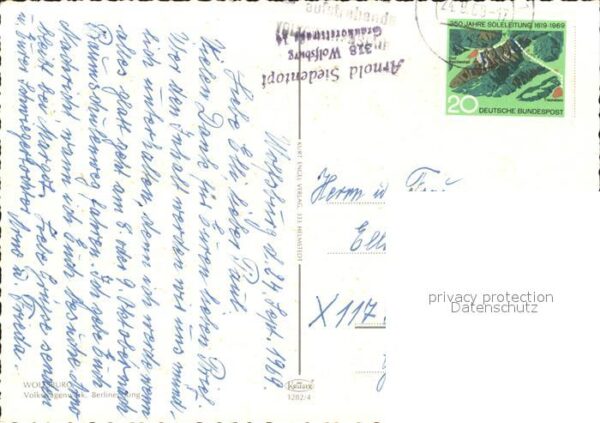 Wolfsburg d. 24. Sept. 1969.
Liebe Elli, lieber Paul!
Vielen Dank für Euren lieben Brief.
Über den Inhalt werden wir uns mündl.
lich unterhalten, denn ich werde wenn
alles glatt geht am 8 oder 9. Oktober nach
fahren. Ich gebe Euch
Nachricht wann ich Euch besuche. Arno
bleibt bei Margot. Viele Grüsse senden
Arno u. Frieda.
Arnold Siedentopf
318 Wolfsburg
250 JAHRE SOLELEITUNG 1619-1969
20 DEUTSCHE BUNDESPOST
Herrn u. Frau
X 117
privacy protection
Datenschutz
KURT ENGEL VERLAG, 333 HELMSTEDT
WOLFSBURG
Volkswagenwerk, Berliner
Krüger
1282/4